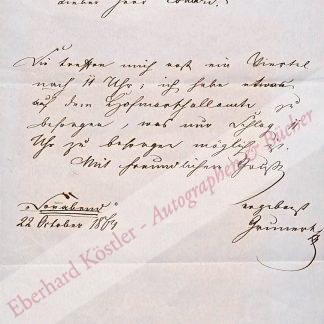 Lieber Herr
Sie treffen mich erst ein Viertel
nach 11 Uhr; ich habe etwas
auf dem Hofmarschallamte zu
besorgen, was nur Schlag
Uhr zu besorgen möglich ist.
Mit freundlichem Gruß
Sonnabend
22 October 1864
ergebenst
Grunert
Eberhard Köstler - Autographen & Bücher